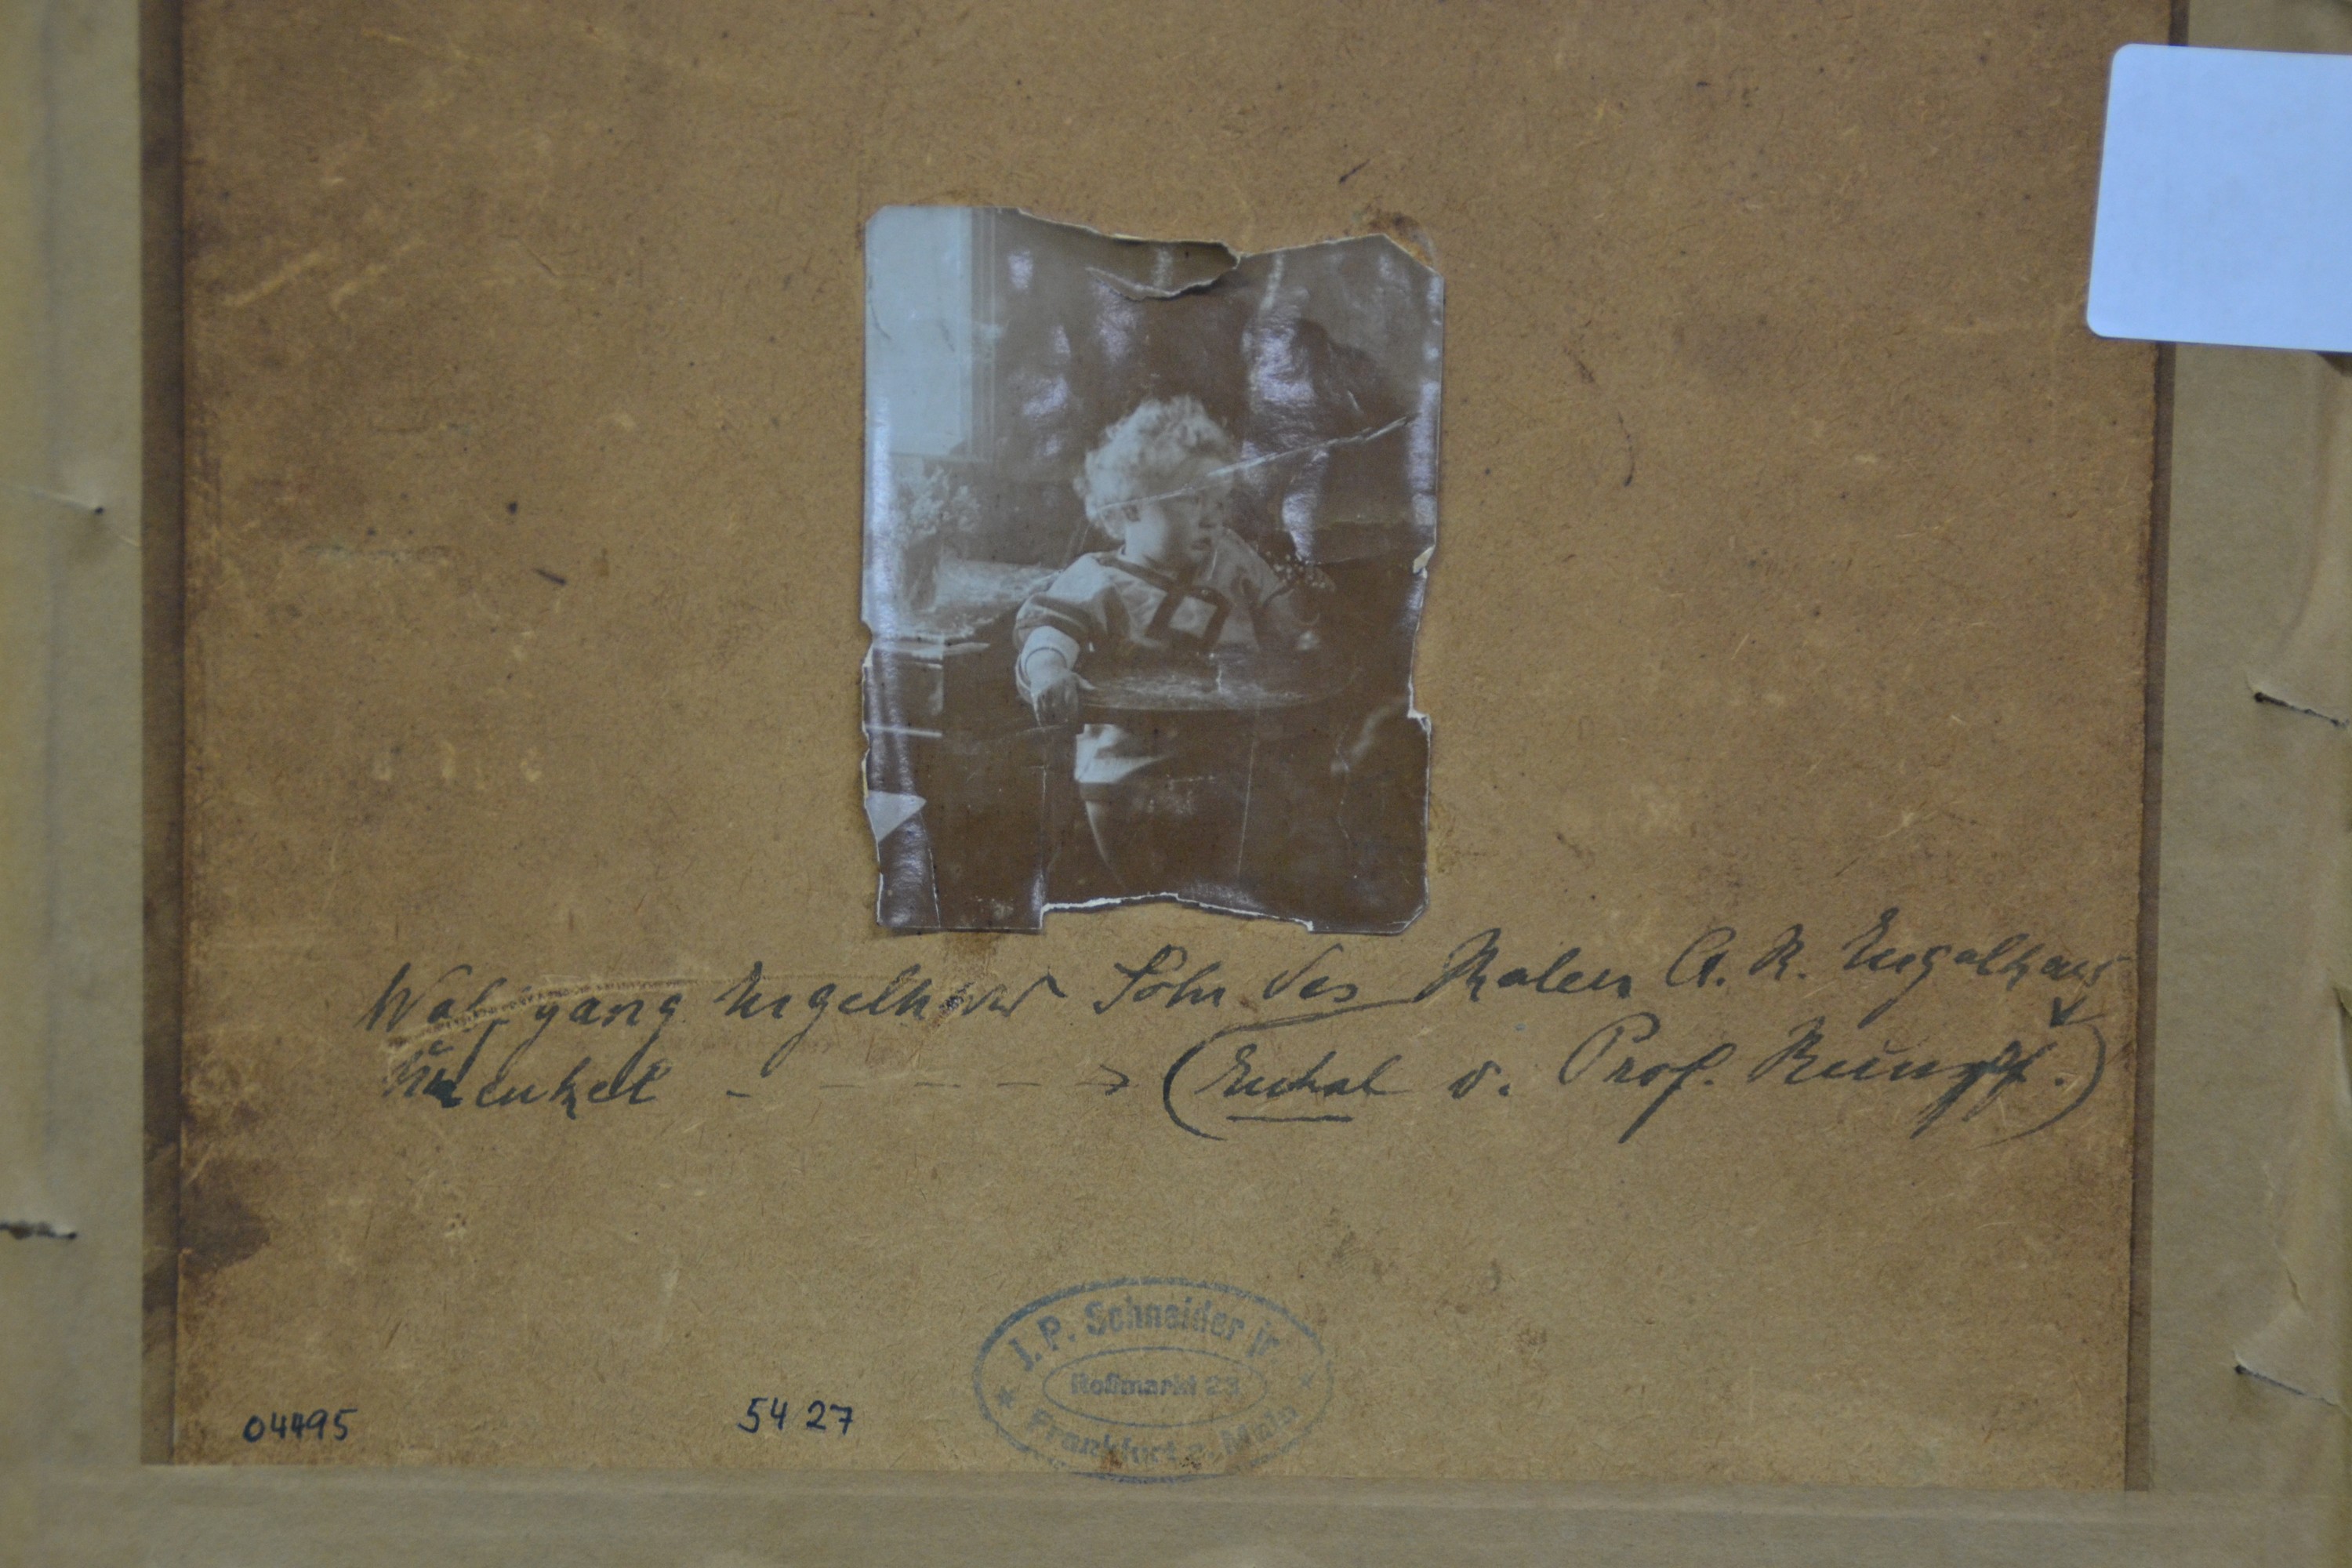 Wolfgang Engelhaus Sohn des Malers A. R. Engelhaus
Urenkel - — — — → (Enkel v. Prof. Rumpf.)
J. P. Schneider jr.
Roßmarkt 23
* Frankfurt a. Main *
04495
54 27